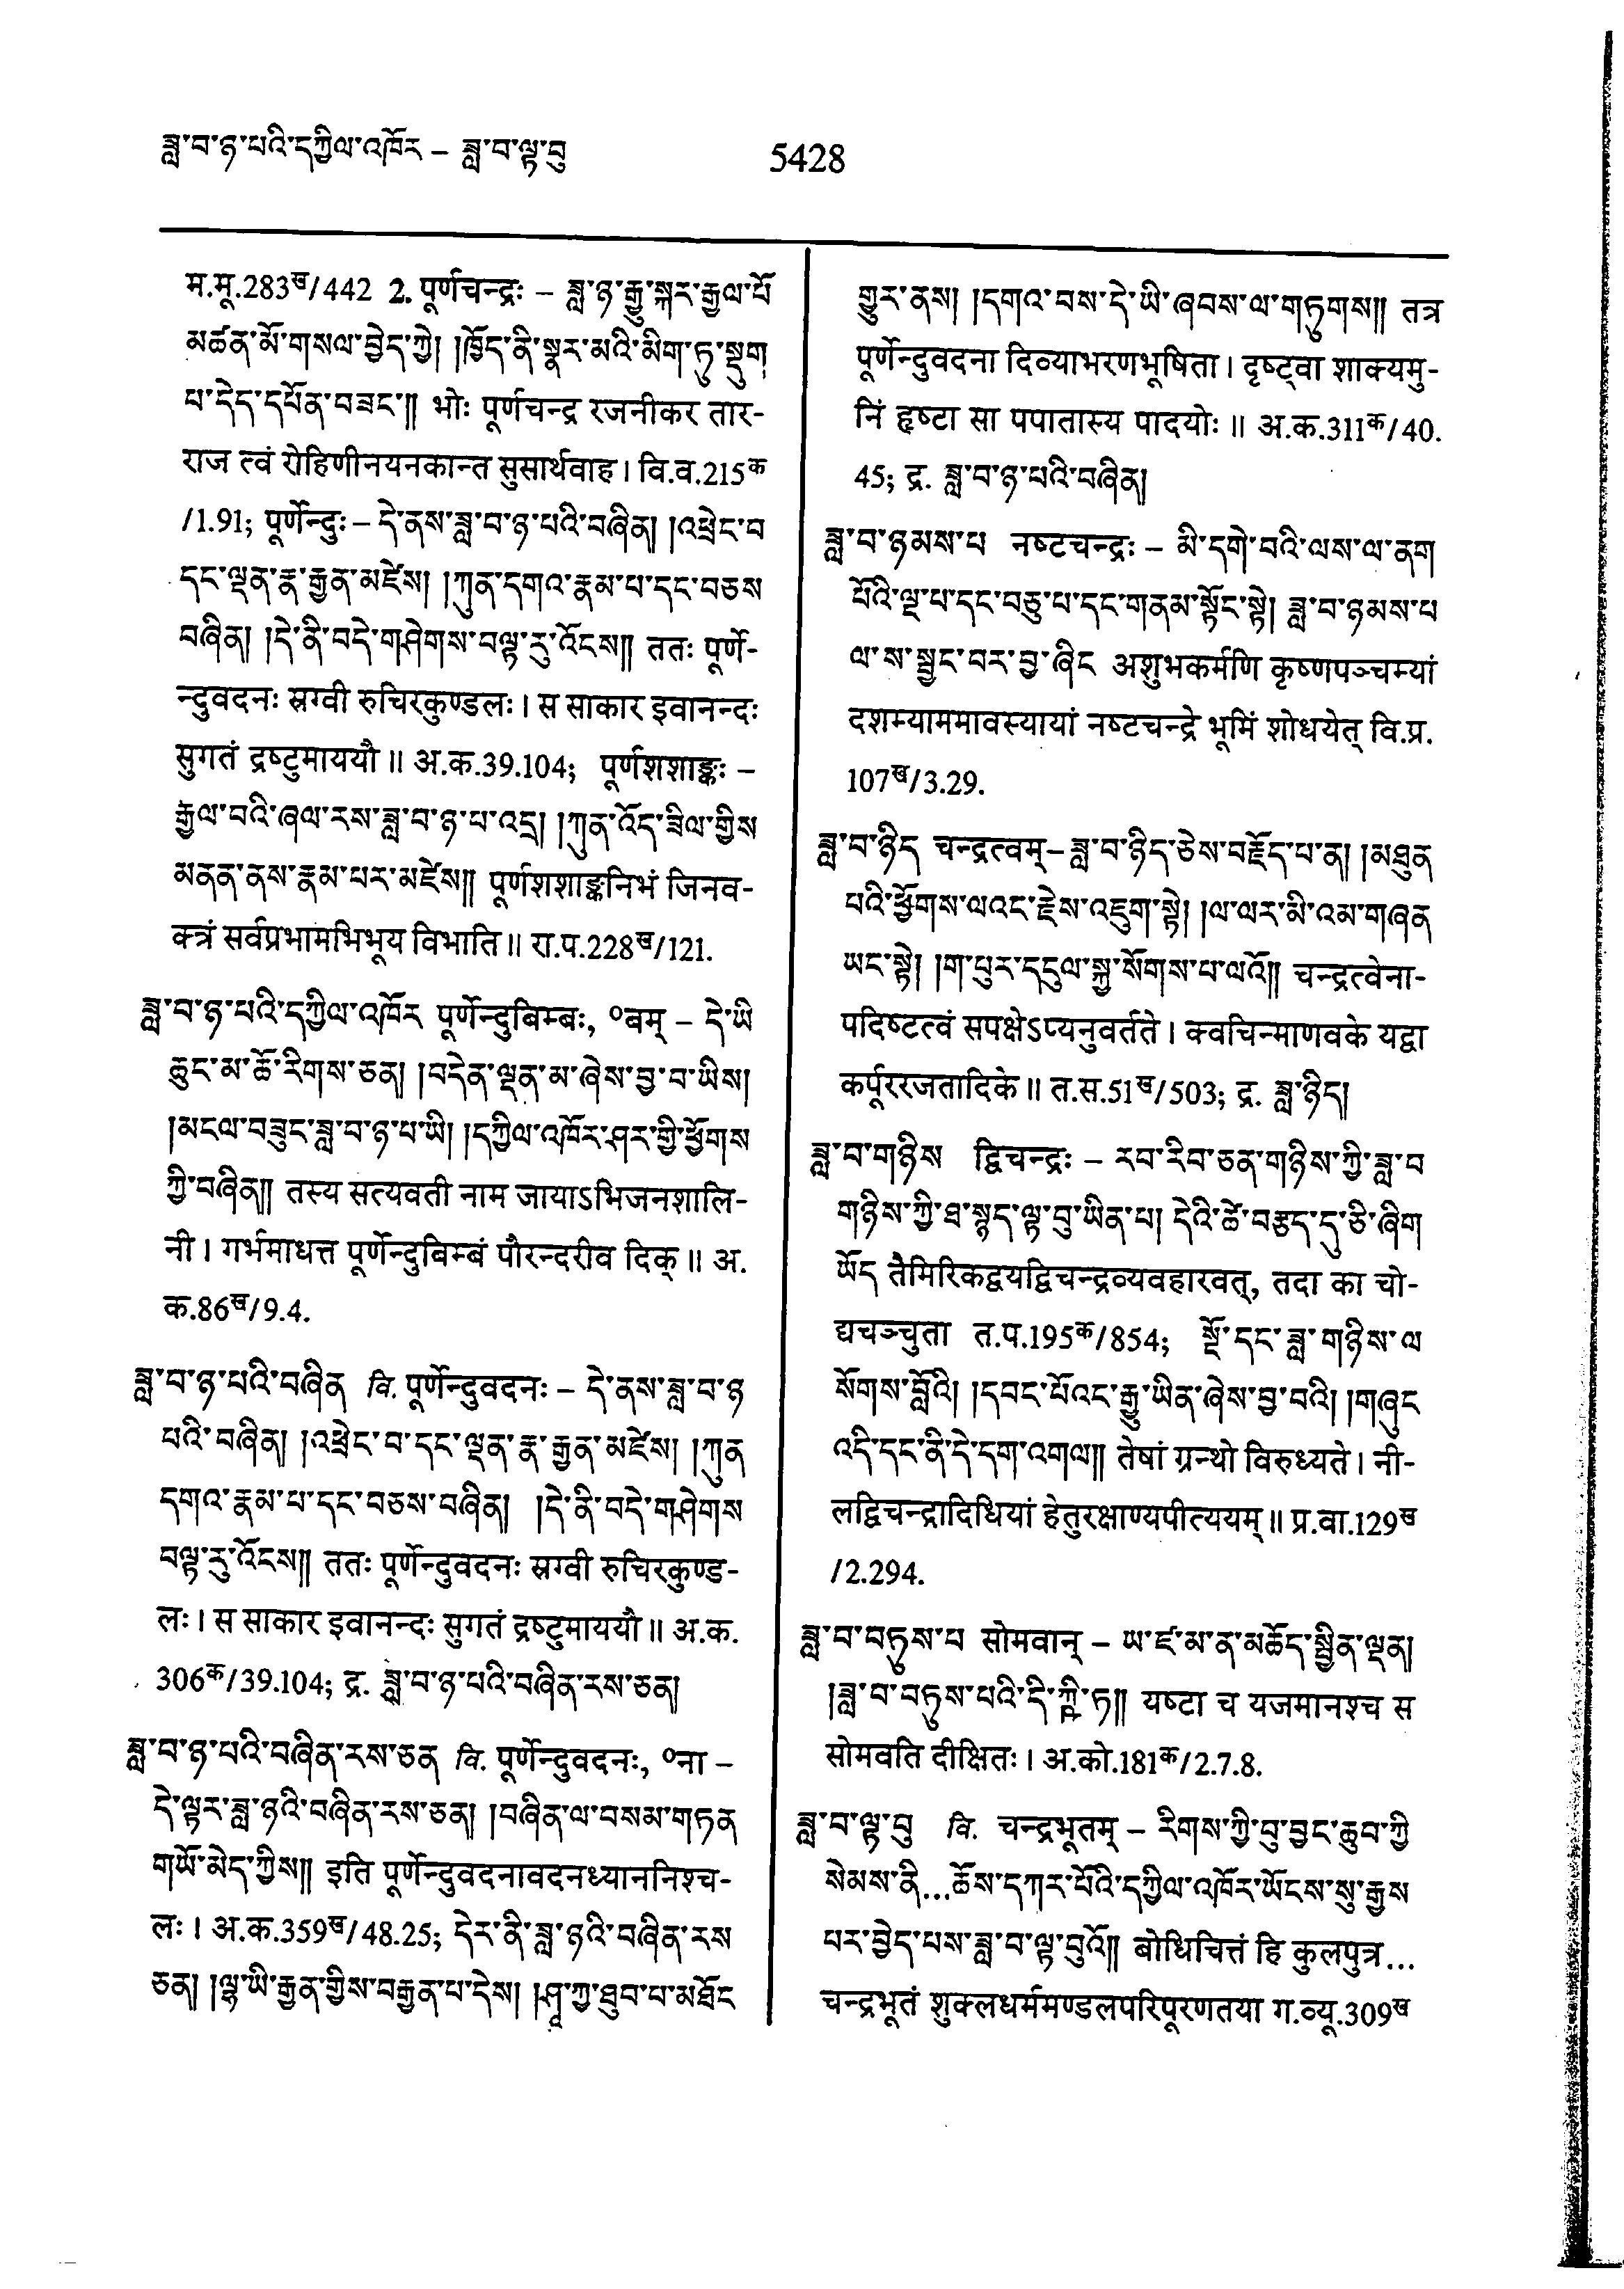 ཟླ་བ་ཉ་པའི་དཀྱིལ་འཁོར – ཟླ་བ་ལྟ་བུ
5428
म.मू.283ख/442 2. पूर्णचन्द्रः – ཟླ་ཉ་རྒྱུ་སྐར་རྒྱལ་པོ
མཚན་མོ་གསལ་བྱེད་ཀྱེ། །ཁྱོད་ནི་སྣར་མའི་མིག་ཏུ་སྡུག
པ་དེད་དཔོན་བཟང་༎ भोः पूर्णचन्द्र रजनीकर तार-
राज त्वं रोहिणीनयनकान्त सुसार्थवाह। वि.व.215क
/1.91; पूर्णेन्दुः – དེ་ནས་ཟླ་བ་ཉ་པའི་བཞིན། །འཕྲེང་བ
དང་ལྡན་རྣ་རྒྱན་མཛེས། །ཀུན་དགའ་རྣམ་པ་དང་བཅས
བཞིན། །དེ་ནི་བདེ་གཤེགས་བལྟ་རུ་འོངས༎ ततः पूर्णे-
न्दुवदनः स्रग्वी रुचिरकुण्डलः। स साकार इवानन्दः
सुगतं द्रष्टुमाययौ॥ अ.क.39.104; पूर्णशशाङ्कः –
རྒྱལ་བའི་ཞལ་རས་ཟླ་བ་ཉ་པ་འདྲ། །ཀུན་འོད་ཟིལ་གྱིས
མནན་ནས་རྣམ་པར་མཛེས༎ पूर्णशशाङ्कनिभं जिनव-
क्त्रं सर्वप्रभामभिभूय विभाति॥ रा.प.228ख/121.
ཟླ་བ་ཉ་པའི་དཀྱིལ་འཁོར पूर्णेन्दुबिम्बः, ०बम् – དེ་ཡི
ཆུང་མ་ཆོ་རིགས་ཅན། །བདེན་ལྡན་མ་ཞེས་བྱ་བ་ཡིས།
།མངལ་བཟུང་ཟླ་བ་ཉ་པ་ཡི། །དཀྱིལ་འཁོར་ཤར་གྱི་ཕྱོགས
ཀྱི་བཞིན༎ तस्य सत्यवती नाम जायाऽभिजनशालि-
नी। गर्भमाधत्त पूर्णेन्दुबिम्बं पौरन्दरीव दिक्॥ अ.
क.86ख/9.4.
ཟླ་བ་ཉ་པའི་བཞིན वि. पूर्णेन्दुवदनः – དེ་ནས་ཟླ་བ་ཉ
པའི་བཞིན། །འཕྲེང་བ་དང་ལྡན་རྣ་རྒྱན་མཛེས། །ཀུན
དགའ་རྣམ་པ་དང་བཅས་བཞིན། །དེ་ནི་བདེ་གཤེགས
བལྟ་རུ་འོངས༎ ततः पूर्णेन्दुवदनः स्रग्वी रुचिरकुण्ड-
लः। स साकार इवानन्दः सुगतं द्रष्टुमाययौ॥ अ.क.
306क/39.104; द्र. ཟླ་བ་ཉ་པའི་བཞིན་རས་ཅན།
ཟླ་བ་ཉ་པའི་བཞིན་རས་ཅན वि. पूर्णेन्दुवदनः, ०ना –
དེ་ལྟར་ཟླ་ཉའི་བཞིན་རས་ཅན། །བཞིན་ལ་བསམ་གཏན
གཡོ་མེད་ཀྱིས༎ इति पूर्णेन्दुवदनावदनध्याननिश्च-
लः। अ.क.359ख/48.25; དེར་ནི་ཟླ་ཉའི་བཞིན་རས
ཅན། །ལྷ་ཡི་རྒྱན་གྱིས་བརྒྱན་པ་དེས། །ཤཱཀྱ་ཐུབ་པ་མཐོང
གྱུར་ནས། །དགའ་བས་དེ་ཡི་ཞབས་ལ་གཏུགས༎ तत्र
पूर्णेन्दुवदना दिव्याभरणभूषिता। दृष्ट्वा शाक्यमु-
निं हृष्टा सा पपातास्य पादयोः॥ अ.क.311क/40.
45; द्र. ཟླ་བ་ཉ་པའི་བཞིན།
ཟླ་བ་ཉམས་པ नष्टचन्द्रः – མི་དགེ་བའི་ལས་ལ་ནག
པོའི་ལྔ་པ་དང་བཅུ་པ་དང་གནམ་སྟོང་སྟེ། ཟླ་བ་ཉམས་པ
ལ་ས་སྦྱང་བར་བྱ་ཞིང अशुभकर्मणि कृष्णपञ्चम्यां
दशम्याममावस्यायां नष्टचन्द्रे भूमिं शोधयेत् वि.प्र.
107ख/3.29.
ཟླ་བ་ཉིད चन्द्रत्वम् – ཟླ་བ་ཉིད་ཅེས་བརྗོད་པ་ན། །མཐུན
པའི་ཕྱོགས་ལའང་རྗེས་འཇུག་སྟེ། །ལ་ལར་མི་འམ་གཞན
ཡང་སྟེ། །ག་པུར་དངུལ་སྐྱ་སོགས་པ་ལའོ༎ चन्द्रत्वेना-
पदिष्टत्वं सपक्षेऽप्यनुवर्तते। क्वचिन्माणवके यद्वा
कर्पूररजतादिके॥ त.स.51ख/503; द्र. ཟླ་ཉིད།
ཟླ་བ་གཉིས द्विचन्द्रः – རབ་རིབ་ཅན་གཉིས་ཀྱི་ཟླ་བ
གཉིས་ཀྱི་ཐ་སྙད་ལྟ་བུ་ཡིན་པ། དེའི་ཚེ་བརྩད་དུ་ཅི་ཞིག
ཡོད तैमिरिकद्वयद्विचन्द्रव्यवहारवत्, तदा का चो-
द्यचञ्चुता त.प.195क/854; སྔོ་དང་ཟླ་གཉིས་ལ
སོགས་བློའི། །དབང་པོའང་རྒྱུ་ཡིན་ཞེས་བྱ་བའི། །གཞུང
འདི་དང་ནི་དེ་དག་འགལ༎ तेषां ग्रन्थो विरुध्यते। नी-
लद्विचन्द्रादिधियां हेतुरक्षाण्यपीत्ययम्॥ प्र.वा.129ख
/2.294.
ཟླ་བ་བཏུས་པ सोमवान् – ཡ་ཛ་མ་ན་མཆོད་སྦྱིན་ལྡན།
།ཟླ་བ་བཏུས་པའི་དི་ཀྵི་ཏ༎ यष्टा च यजमानश्च स
सोमवति दीक्षितः। अ.को.181क/2.7.8.
ཟླ་བ་ལྟ་བུ वि. चन्द्रभूतम् – རིགས་ཀྱི་བུ་བྱང་ཆུབ་ཀྱི
སེམས་ནི…ཆོས་དཀར་པོའི་དཀྱིལ་འཁོར་ཡོངས་སུ་རྒྱས
པར་བྱེད་པས་ཟླ་བ་ལྟ་བུའོ༎ बोधिचित्तं हि कुलपुत्र…
चन्द्रभूतं शुक्लधर्ममण्डलपरिपूरणतया ग.व्यू.309ख